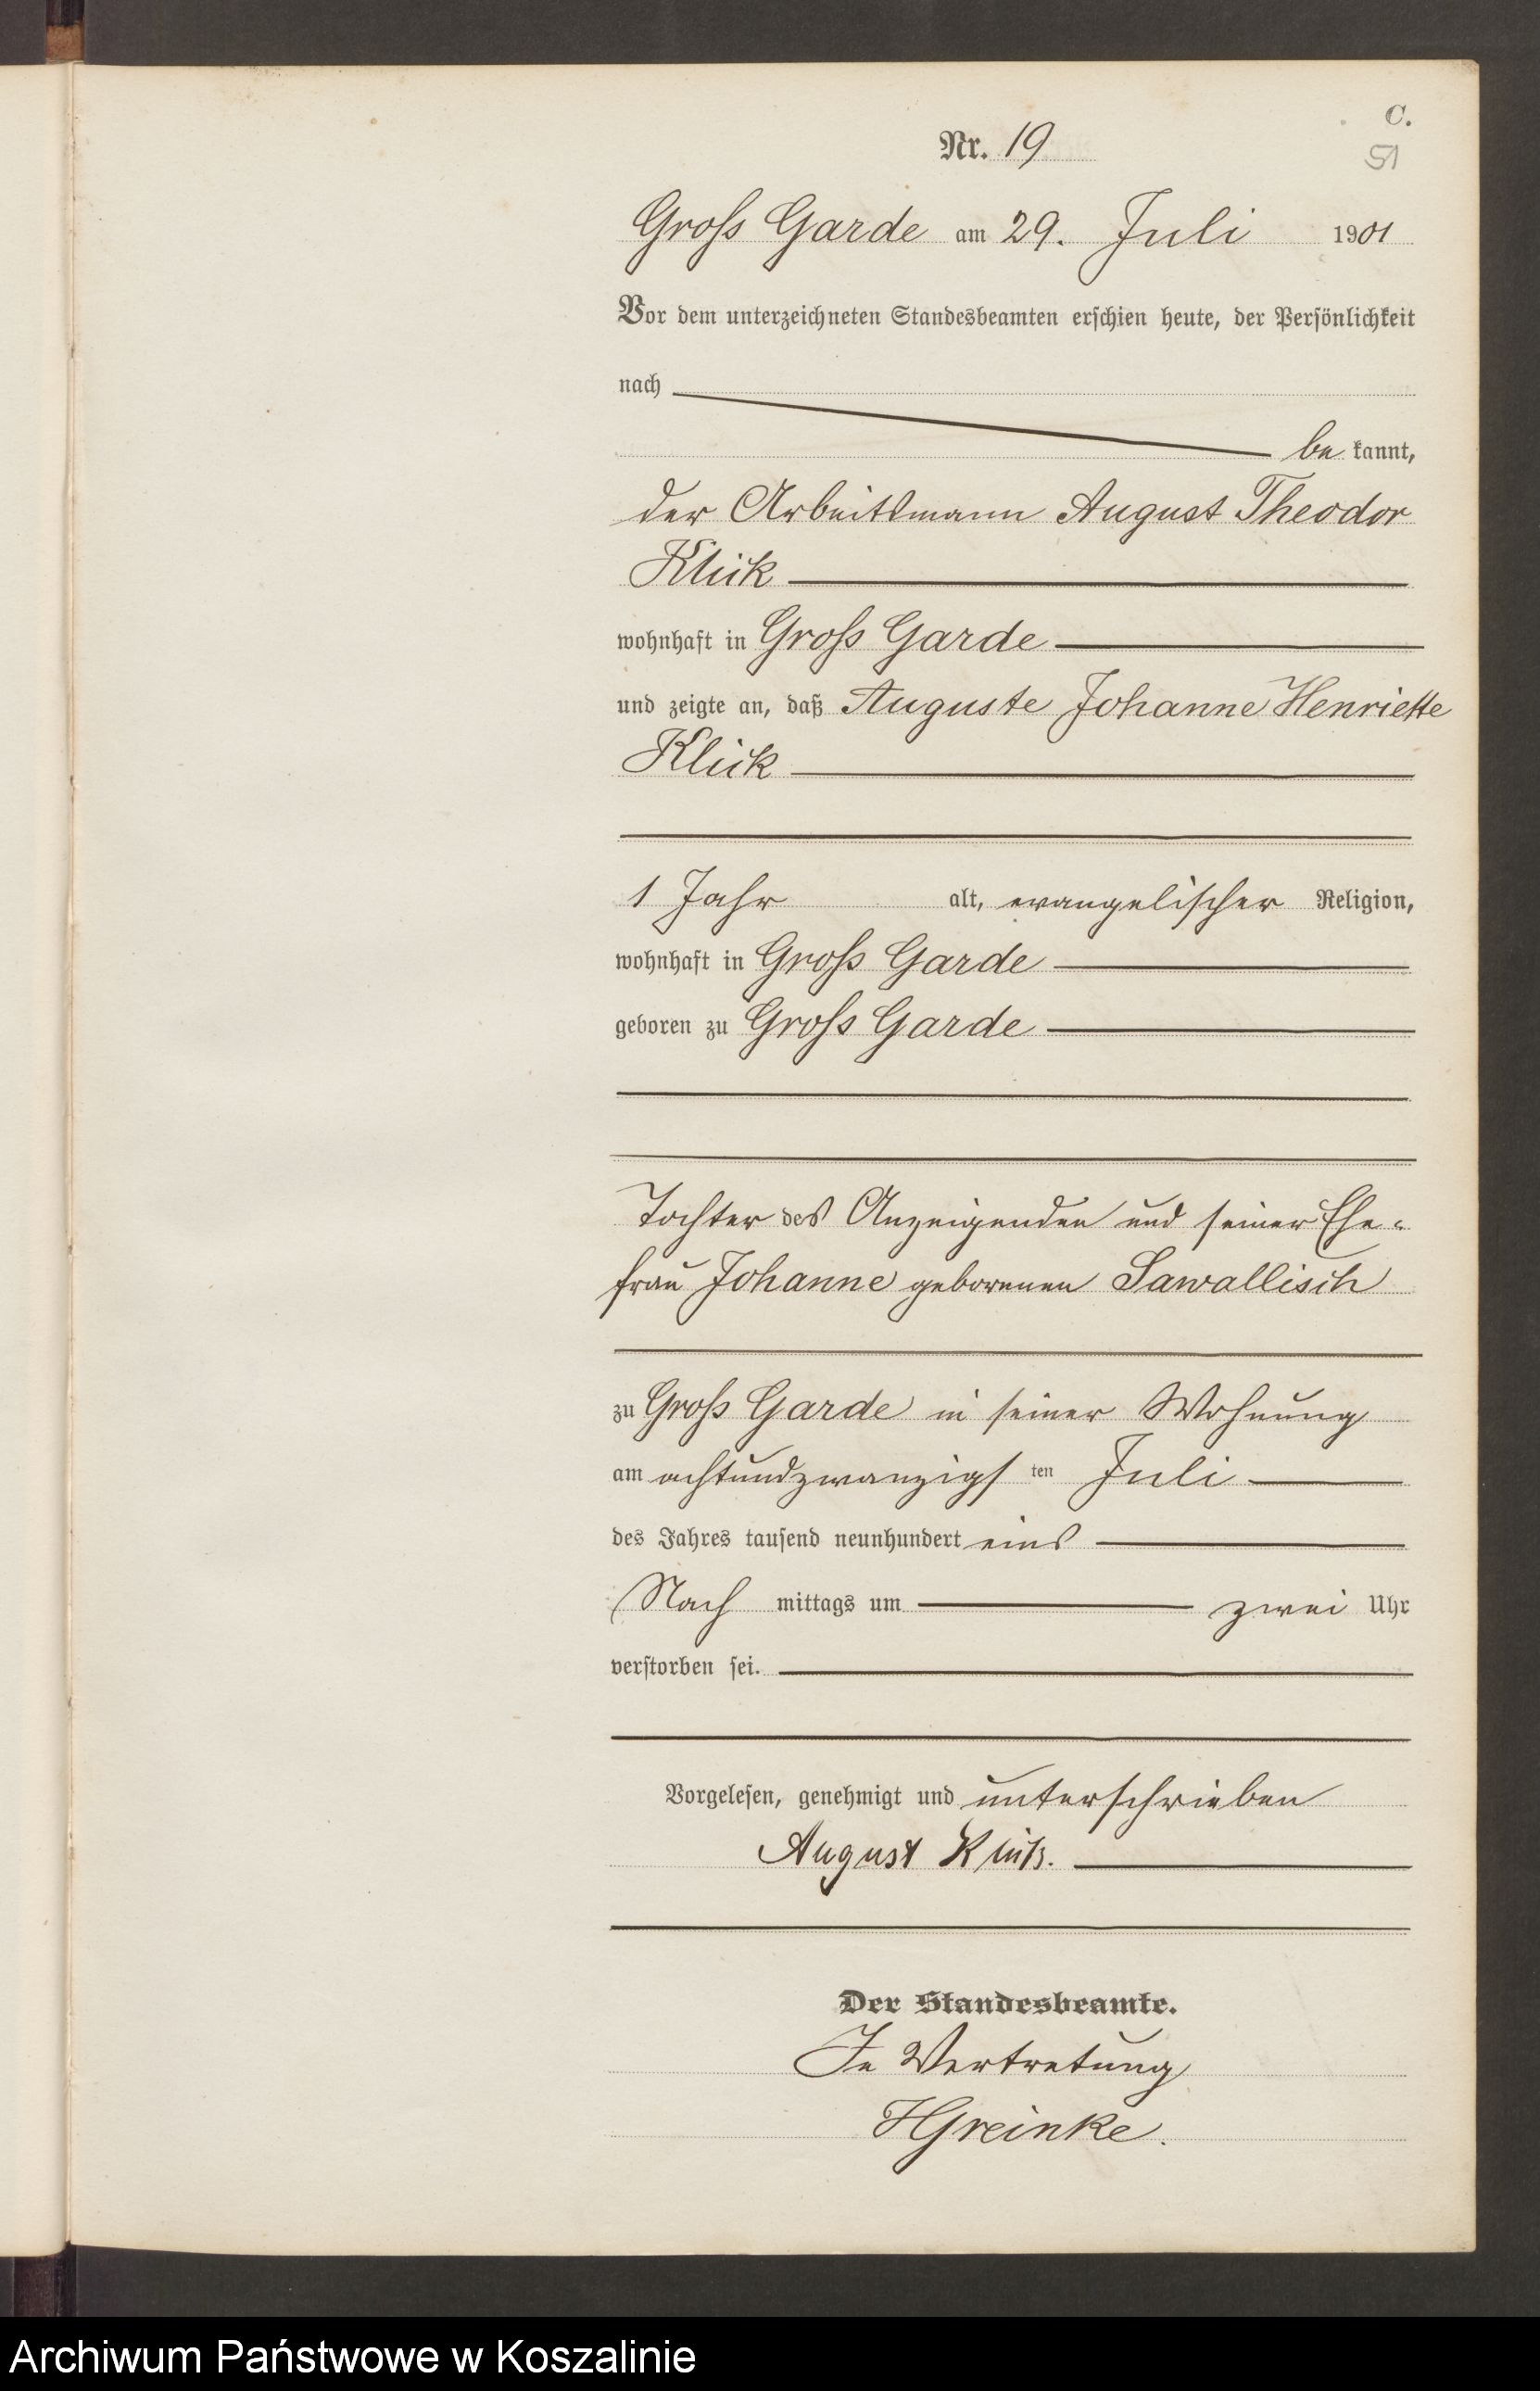 C.
Nr. 19
51
Gross Garde am 29. Juli 1901
Vor dem unterzeichneten Standesbeamten erschien heute, der Persönlichkeit
nach
be kannt,
der Arbeitsmann August Theodor
Klick
wohnhaft in Gross Garde
und zeigte an, daß Auguste Johanne Henriette
Klick
1 Jahr alt, evangelischer Religion,
wohnhaft in Gross Garde
geboren zu Gross Garde
Tochter des Anzeigenden und seiner Ehe-
frau Johanne geborenen Sawallisch
zu Gross Garde in seiner Wohnung
am achtundzwanzigs ten Juli
des Jahres tausend neunhundert eins
Nach mittags um zwei Uhr
verstorben sei.
Vorgelesen, genehmigt und unterschrieben
August
Der Standesbeamte.
In Vertretung
HGreinke.
Archiwum Państwowe w Koszalinie